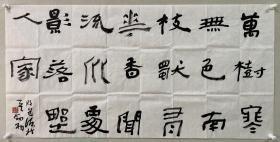 萬樹寒
無色南
枝獨有
花香聞
流水處
影落野
人家